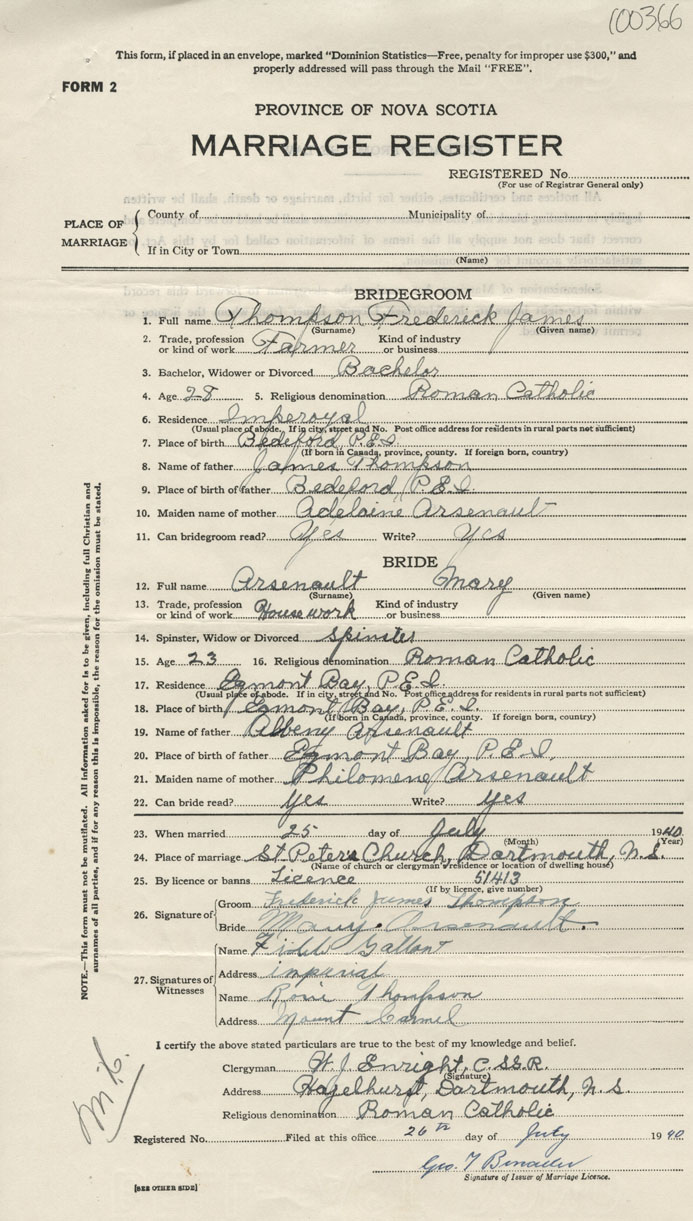 100366
This form, if placed in an envelope, marked "Dominion Statistics—Free, penalty for improper use $300," and
properly addressed will pass through the Mail "FREE".
FORM 2
PROVINCE OF NOVA SCOTIA
MARRIAGE REGISTER
REGISTERED No.
(For use of Registrar General only)
PLACE OF MARRIAGE
County of Municipality of
If in City or Town
(Name)
BRIDEGROOM
1. Full name Thompson Frederick James
(Surname) (Given name)
2. Trade, profession or kind of work Farmer Kind of industry or business
3. Bachelor, Widower or Divorced Bachelor
4. Age 28 5. Religious denomination Roman Catholic
6. Residence Imperoyal
(Usual place of abode. If in city, street and No. Post office address for residents in rural parts not sufficient)
7. Place of birth Bedeford P.E.I.
(If born in Canada, province, county. If foreign born, country)
8. Name of father James Thompson
9. Place of birth of father Bedeford P.E.I.
10. Maiden name of mother Adelaine Arsenault
11. Can bridegroom read? Yes Write? Yes
BRIDE
12. Full name Arsenault Mary
(Surname) (Given name)
13. Trade, profession or kind of work Housework Kind of industry or business
14. Spinster, Widow or Divorced Spinster
15. Age 23 16. Religious denomination Roman Catholic
17. Residence Egmont Bay, P.E.I.
(Usual place of abode. If in city, street and No. Post office address for residents in rural parts not sufficient)
18. Place of birth Egmont Bay, P.E.I.
(If born in Canada, province, county. If foreign born, country)
19. Name of father Albeny Arsenault
20. Place of birth of father Egmont Bay, P.E.I.
21. Maiden name of mother Philomene Arsenault
22. Can bride read? Yes Write? Yes
23. When married 25 day of July 1940
(Month) (Year)
24. Place of marriage St. Peters Church, Dartmouth, N.S.
(Name of church or clergyman's residence or location of dwelling house)
25. By licence or banns Licence 51413
(If by licence, give number)
26. Signature of
Groom Frederick James Thompson
Bride Mary Arsenault.
27. Signatures of Witnesses
Name Gallant
Address imperial
Name Thompson
Address Mount Carmel
I certify the above stated particulars are true to the best of my knowledge and belief.
Clergyman W. J. Enright, C.SS.R.
(Signature)
Address Hazelhurst, Dartmouth, N.S
Religious denomination Roman Catholic
Registered No. Filed at this office 26th day of July 1940
Geo. T
Signature of Issuer of Marriage Licence.
[SEE OTHER SIDE]
NOTE.—This form must not be mutilated. All information asked for is to be given, including full Christian and
surnames of all parties, and if for any reason this is impossible, the reason for the omission must be stated.